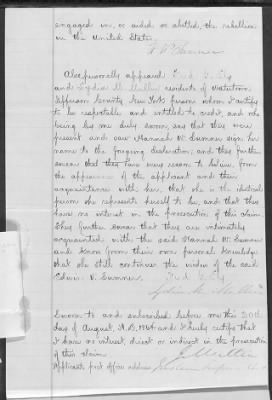 engaged in, or aided or abetted, the rebellion
in the United States.
H. W. Sumner
Also personally appeared Fred. G. Ely
and Lydia M. Mullin residents of Watertown
Jefferson County New York persons whom I certify
to be respectable and entitled to credit, and who
being by me duly sworn, say that they were
present and saw Hannah W. Sumner sign her
name to the foregoing declaration; and they further
swear that they have every reason to believe, from
the appearance of the applicant and their
acquaintance with her, that she is the identical
person she represents herself to be, and that they
have no interest in the prosecution of this claim.
They further swear that they are intimately
acquainted with the said Hannah W. Sumner
and know from their own personal knowledge
that she still continues the widow of the said
Edwin V. Sumner.
Fred. G. Ely
Lydia M. Mullin
Sworn to and subscribed before me this 30th
day of August, A.D. 1864 and I hereby certify that
I have no interest, direct or indirect in the prosecution
of this claim.
Mullin
Applicants post office address